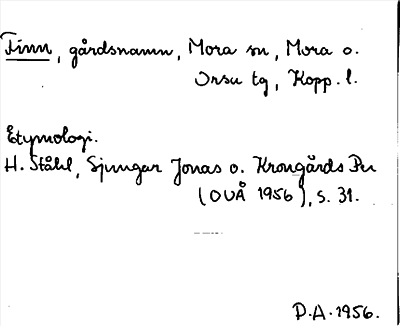 Finn, gårdsnamn, Mora sn, Mora o.
Orsa tg, Kopp. l.
Etymologi.
H. Ståhl, Sjungar Jonas o. Krongårds Per
(OUÅ 1956), s. 31.
D.A. 1956.